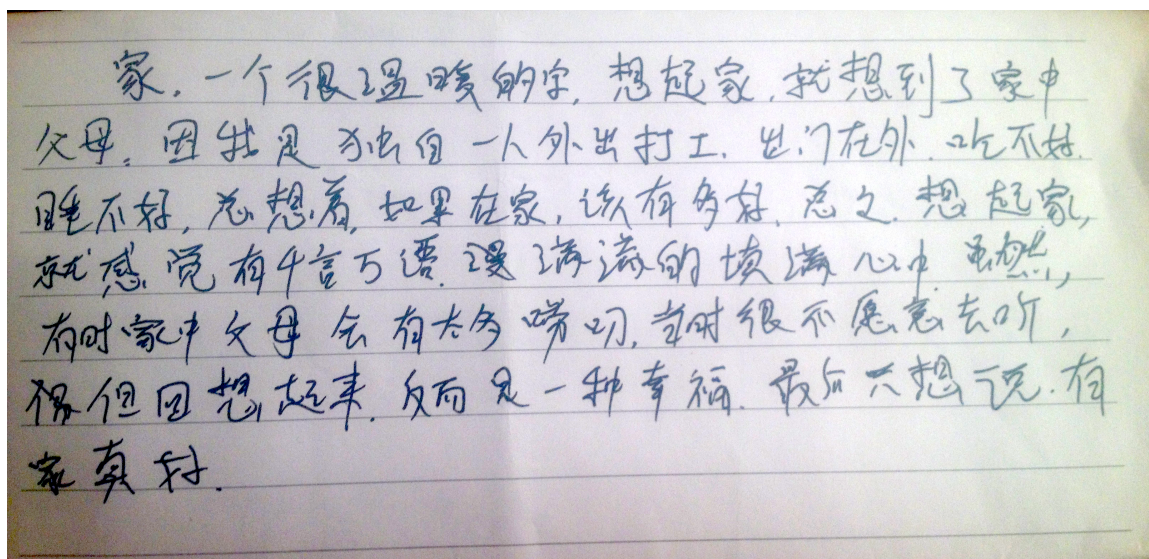 家,一个很温暖的字,想起家,就想到了家中
父母,因我是独自一人外出打工,出门在外,吃不好,
睡不好,总想着,如果在家,该有多好,总之,想起家,
就感觉有千言万语,漫满满的填满心中,虽然,
有时家中父母会有太多唠叨,当时很不愿意去听,
但回想起来,反而是一种幸福,最后只想说,有
家真好.